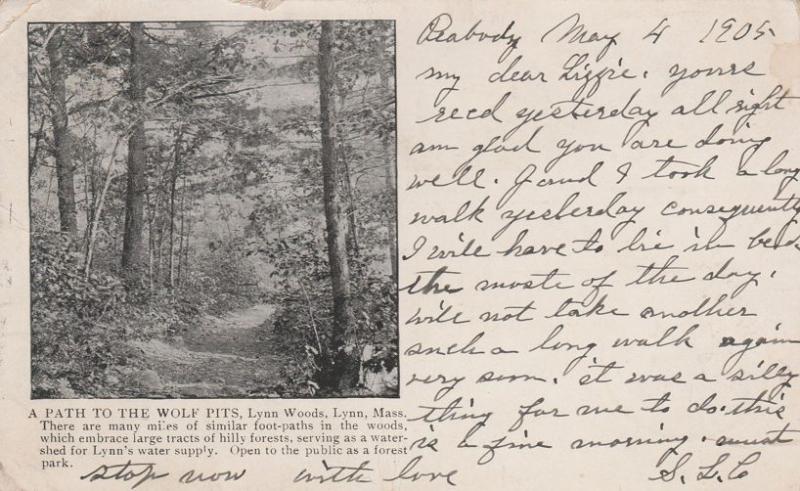 Peabody May 4 1905
my dear Lizzie. yours
recd yesterday all right
am glad you are doing
well. J and I took a long
walk yesterday consequently
I will have to lie in bed
the moste of the day.
will not take another
such a long walk again
very soon. it was a silly
thing for me to do. this
is a fine morning. must
stop now with love S. L. C
A PATH TO THE WOLF PITS, Lynn Woods, Lynn, Mass.
There are many miles of similar foot-paths in the woods,
which embrace large tracts of hilly forests, serving as a water-
shed for Lynn's water supply. Open to the public as a forest
park.